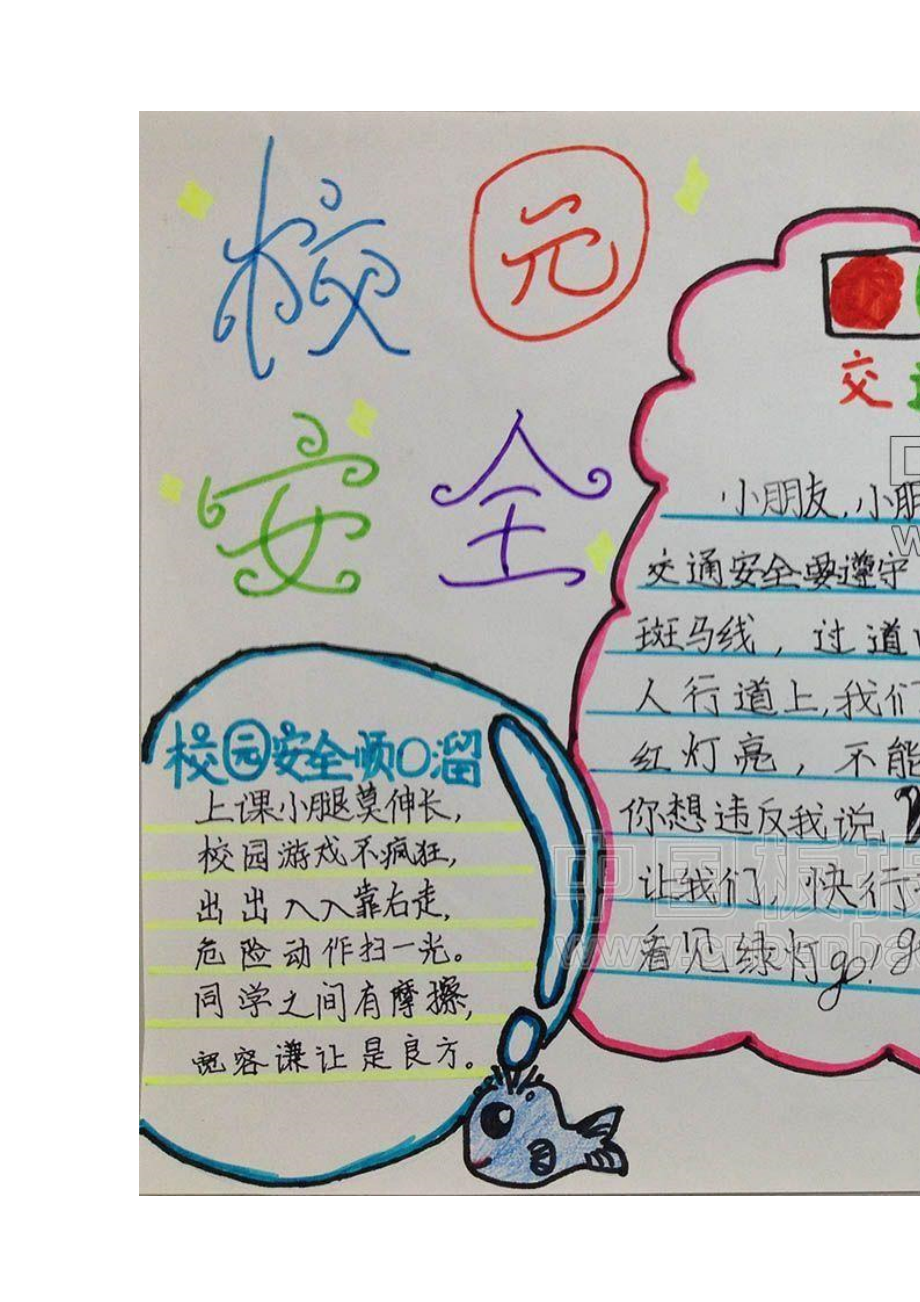 校园
安全
校园安全顺口溜
上课小腿莫伸长,
校园游戏不疯狂,
出出入入靠右走,
危险动作扫一光。
同学之间有摩擦,
宽容谦让是良方。
交通
小朋友,小朋
交通安全要遵守
斑马线,过道
人行道上,我们
红灯亮,不能
你想违反我说,
让我们,快行
看见绿灯go!g
中国板报
www.cnbanba